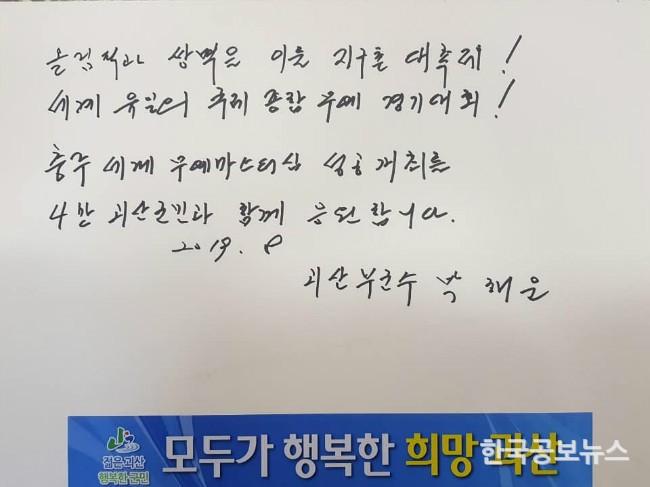 올림픽과 쌍벽을 이룰 지구촌 대축제!
세계 유일의 국제 종합 무예 경기대회!
충주 세계 무예마스터십 성공 개최를
4만 괴산군민과 함께 응원합니다.
2019. 8
괴산부군수 박해운
젊은괴산
행복한 군민
모두가 행복한 희망 괴산
한국공보뉴스